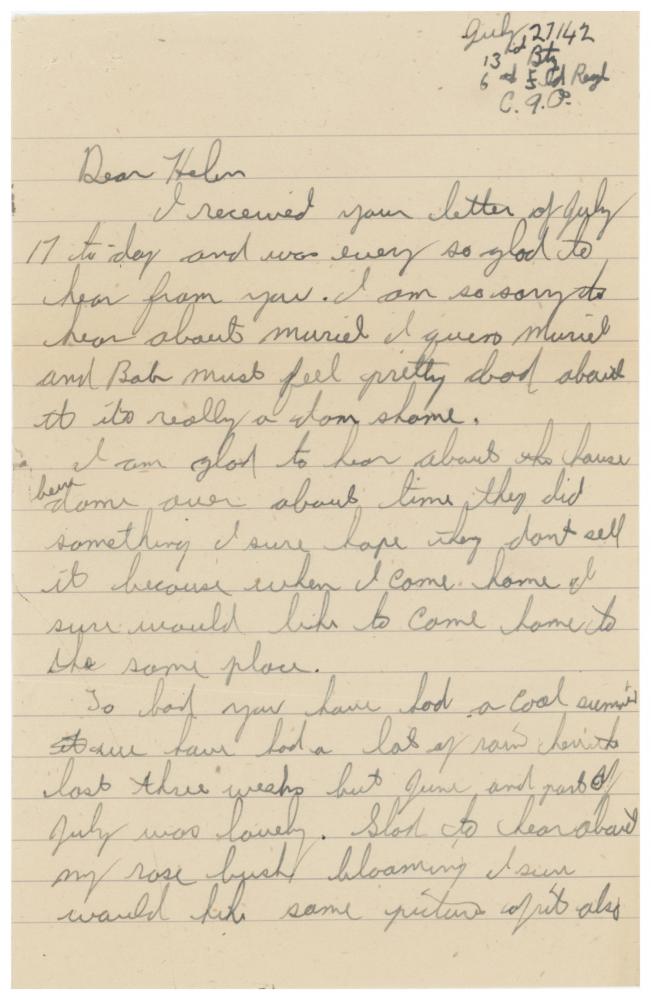 July 27/42
13 Bty
6 Fd Regt
C. A. O.
Dear Helen
I received your letter of July
17 to-day and was every so glad to
hear from you. I am so sorry to
hear about Muriel I guess Muriel
and Bob must feel pretty bad about
it its really a dam shame.
I am glad to hear about the house
been
done over about time they did
something I sure hope they dont sell
it because when I come home I
sure would like to come home to
the same place.
To bad you have had a cool summer
we have had a lot of rain here
last three weeks but June and part of
July was lovely. Glad to hear about
my rose bush blooming I sure
would like some picture of it also